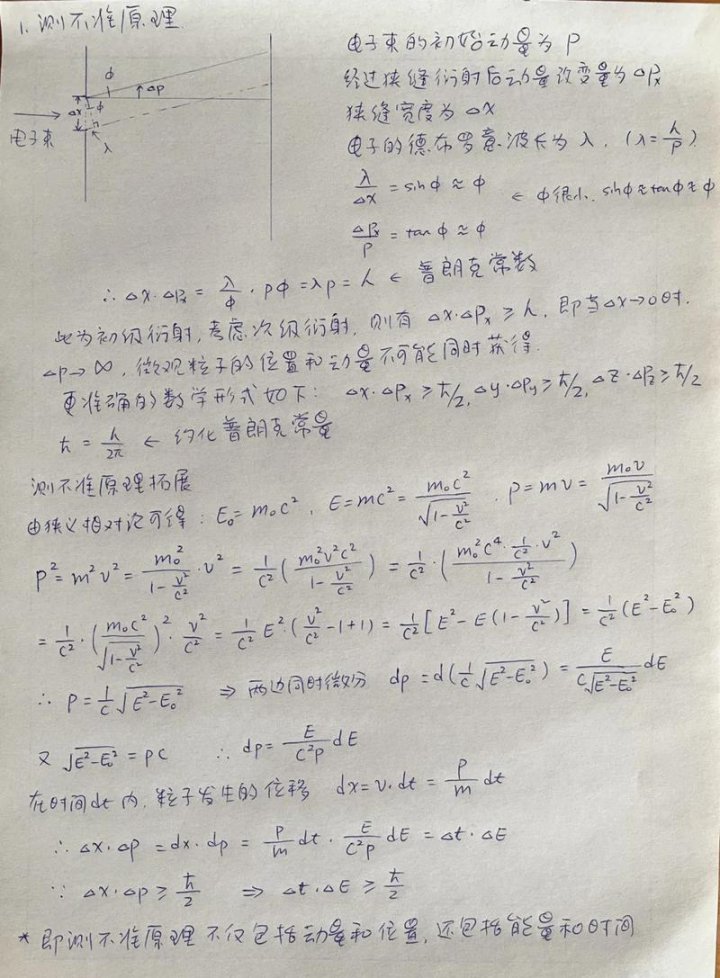 1. 测不准原理
φ
Δp
Δx
φ
电子束
λ
电子束的初始动量为 P
经过狭缝衍射后动量改变量为 ΔPx
狭缝宽度为 Δx
电子的德布罗意波长为 λ. (λ=h/p)
λ/Δx = sinφ ≈ φ ← φ很小. sinφ≈tanφ≈φ
ΔPx/P = tanφ ≈ φ
∴ Δx·ΔPx = λ/φ · pφ = λp = h ← 普朗克常数
此为初级衍射, 考虑次级衍射, 则有 Δx·ΔPx ≥ h, 即当Δx→0时.
Δp→∞, 微观粒子的位置和动量不可能同时获得.
更准确的数学形式如下: Δx·ΔPx ≥ ħ/2, Δy·ΔPy ≥ ħ/2, Δz·ΔPz ≥ ħ/2
ħ = h/2π ← 约化普朗克常量
测不准原理拓展
由狭义相对论可得: E₀=m₀c², E=mc²=m₀c²/√(1-v²/c²) . P=mv=m₀v/√(1-v²/c²)
P²=m²v²=m₀²/(1-v²/c²)·v² = 1/c²(m₀²v²c²/(1-v²/c²)) = 1/c²·(m₀²c⁴·1/c²·v²/(1-v²/c²))
= 1/c²·(m₀c²/√(1-v²/c²))²·v²/c² = 1/c² E²·(v²/c²-1+1) = 1/c²[E²-E(1-v²/c²)] = 1/c²(E²-E₀²)
∴ P=1/c √(E²-E₀²) ⇒ 两边同时微分 dp=d(1/c √(E²-E₀²))=E/(c√(E²-E₀²)) dE
又 √(E²-E₀²)=pc ∴ dp=E/(c²p) dE
在时间dt内, 粒子发生的位移 dx=v·dt=p/m dt
∴ Δx·Δp = dx·dp = p/m dt · E/(c²p) dE = Δt·ΔE
∵ Δx·Δp ≥ ħ/2 ⇒ Δt·ΔE ≥ ħ/2
* 即测不准原理不仅包括动量和位置, 还包括能量和时间